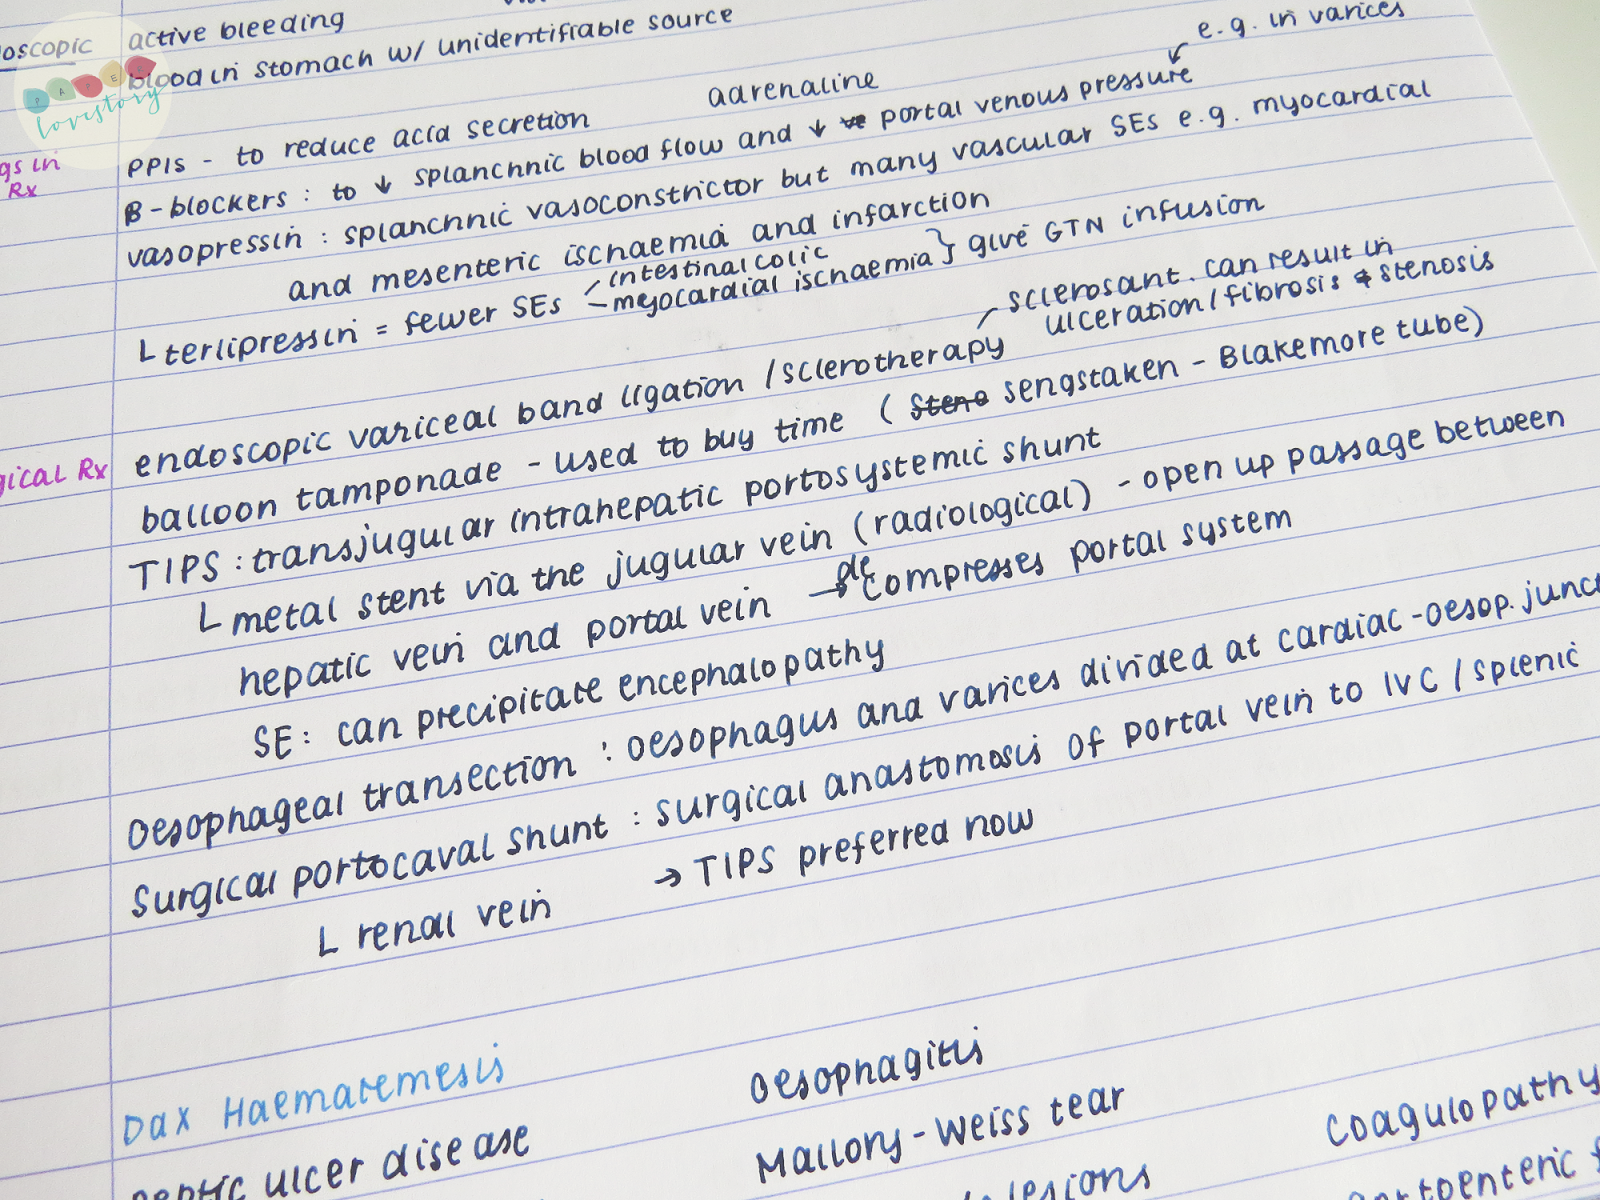 active bleeding
oscopic
blood in stomach w/ unidentifiable source
PAPER
lovestory
e.g. in varices
adrenaline
gs in
Rx
PPIs - to reduce acid secretion
β-blockers : to ↓ splanchnic blood flow and ↓ portal venous pressure
vasopressin : splanchnic vasoconstrictor but many vascular SEs e.g. myocardial
and mesenteric ischaemia and infarction
L terlipressin = fewer SEs
intestinal colic
myocardial ischaemia } give GTN infusion
sclerosant. can result in
ulceration/fibrosis & stenosis
gical Rx
endoscopic variceal band ligation / sclerotherapy
balloon tamponade - used to buy time ( Steno sengstaken - Blakemore tube)
TIPS : transjugular intrahepatic portosystemic shunt
L metal stent via the jugular vein (radiological) - open up passage between
hepatic vein and portal vein → decompresses portal system
SE: can precipitate encephalopathy
Oesophageal transection : oesophagus and varices divided at cardiac-oesop. junct
Surgical portocaval shunt : surgical anastomosis of portal vein to IVC / splenic
L renal vein → TIPS preferred now
Dax Haematemesis
peptic ulcer disease
Oesophagitis
Mallory-Weiss tear
lesions
Coagulopathy